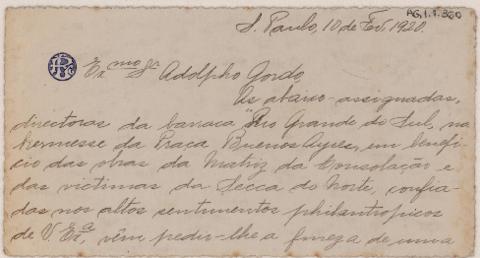 AG.1.1.360
S. Paulo, 10 de Fev. 1920.
Exmo Sr Adolpho Gordo,
As abaixo-assignadas,
directoras da barraca "Rio Grande do Sul, na
kermesse da Praça Buenos Ayres, em benefi-
cio das obras da Matriz da Consolação e
das victimas da Secca do Norte, confia-
das nos altos sentimentos philantropicos
de V. Exa, vêm pedir-lhe a fineza de uma